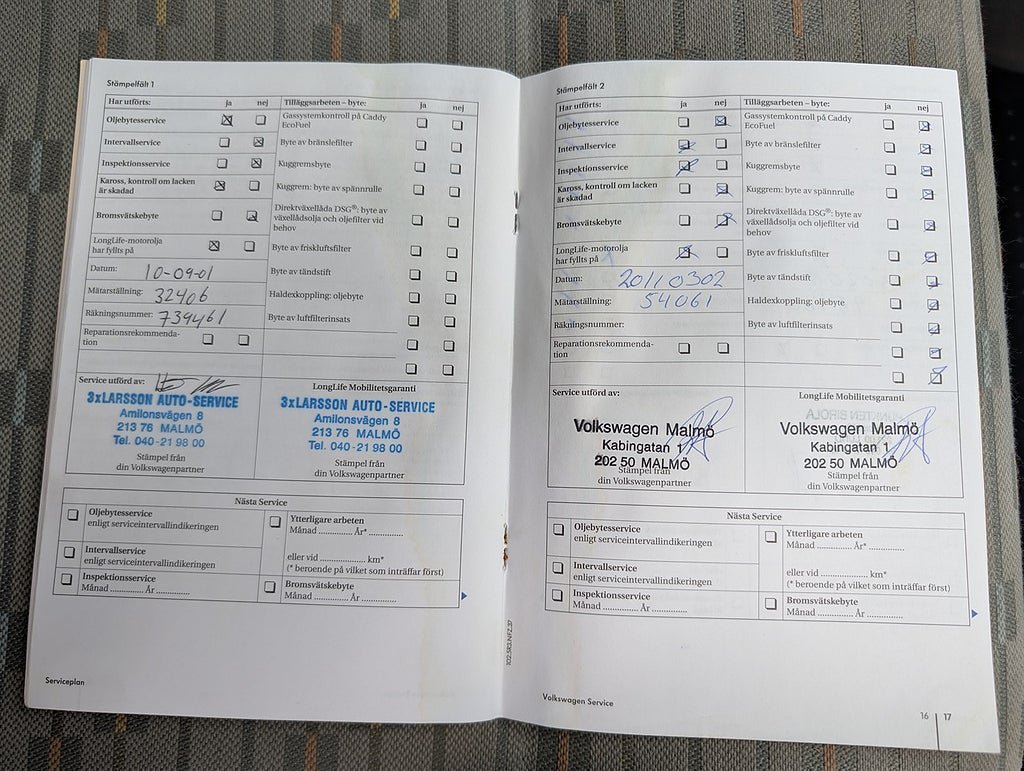 Stämpelfält 1
Har utförts: ja nej Tilläggsarbeten – byte: ja nej
Oljebytesservice
Gassystemkontroll på Caddy
EcoFuel
Intervallservice
Byte av bränslefilter
Inspektionsservice
Kuggremsbyte
Kaross, kontroll om lacken
är skadad
Kuggrem: byte av spännrulle
Bromsvätskebyte
Direktväxellåda DSG®: byte av
växellådsolja och oljefilter vid
behov
LongLife-motorolja
har fyllts på
Byte av friskluftfilter
Datum: 10-09-01
Byte av tändstift
Mätarställning: 32406
Haldexkoppling: oljebyte
Räkningsnummer: 739461
Byte av luftfilterinsats
Reparationsrekommenda-
tion
Service utförd av:
3xLARSSON AUTO-SERVICE
Amilonsvägen 8
213 76 MALMÖ
Tel. 040-21 98 00
Stämpel från
din Volkswagenpartner
LongLife Mobilitetsgaranti
3xLARSSON AUTO-SERVICE
Amilonsvägen 8
213 76 MALMÖ
Tel. 040-21 98 00
Stämpel från
din Volkswagenpartner
Nästa Service
Oljebytesservice
enligt serviceintervallindikeringen
Intervallservice
enligt serviceintervallindikeringen
Inspektionsservice
Månad .............. År ............
Ytterligare arbeten
Månad .............. År* ............
eller vid .............. km*
(* beroende på vilket som inträffar först)
Bromsvätskebyte
Månad .............. År ............
Serviceplan
102.5R3.NFZ.37
Stämpelfält 2
Har utförts: ja nej Tilläggsarbeten – byte: ja nej
Oljebytesservice
Gassystemkontroll på Caddy
EcoFuel
Intervallservice
Byte av bränslefilter
Inspektionsservice
Kuggremsbyte
Kaross, kontroll om lacken
är skadad
Kuggrem: byte av spännrulle
Bromsvätskebyte
Direktväxellåda DSG®: byte av
växellådsolja och oljefilter vid
behov
LongLife-motorolja
har fyllts på
Byte av friskluftfilter
Datum: 20110302
Byte av tändstift
Mätarställning: 54061
Haldexkoppling: oljebyte
Räkningsnummer:
Byte av luftfilterinsats
Reparationsrekommenda-
tion
Service utförd av:
Volkswagen Malmö
Kabingatan 1
202 50 MALMÖ
Stämpel från
din Volkswagenpartner
LongLife Mobilitetsgaranti
Volkswagen Malmö
Kabingatan 1
202 50 MALMÖ
Stämpel från
din Volkswagenpartner
Nästa Service
Oljebytesservice
enligt serviceintervallindikeringen
Intervallservice
enligt serviceintervallindikeringen
Inspektionsservice
Månad .............. År ............
Ytterligare arbeten
Månad .............. År* ............
eller vid .............. km*
(* beroende på vilket som inträffar först)
Bromsvätskebyte
Månad .............. År ............
Volkswagen Service
16 17